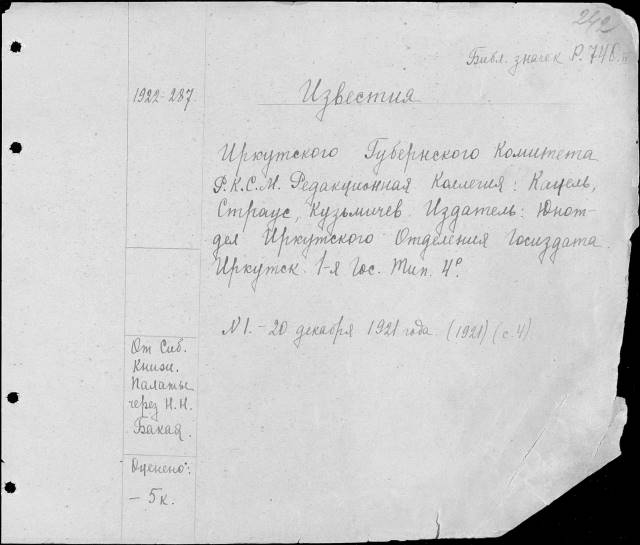 242
Библ. значек Р.748.
1922-287.
Известия
Иркутского Губернского Комитета
Р.К.С.М. Редакционная Коллегия: Кацель,
Страус, Кузьмичев. Издатель: Юнот-
дел Иркутского Отделения Госиздата.
Иркутск. 1-я Гос. Тип. 4°.
N1.-20 декабря 1921 года. (1921) (с.4).
От Сиб.
Книжн.
Палаты
через Н.Н.
Бакая.
Оценено:
- 5к.